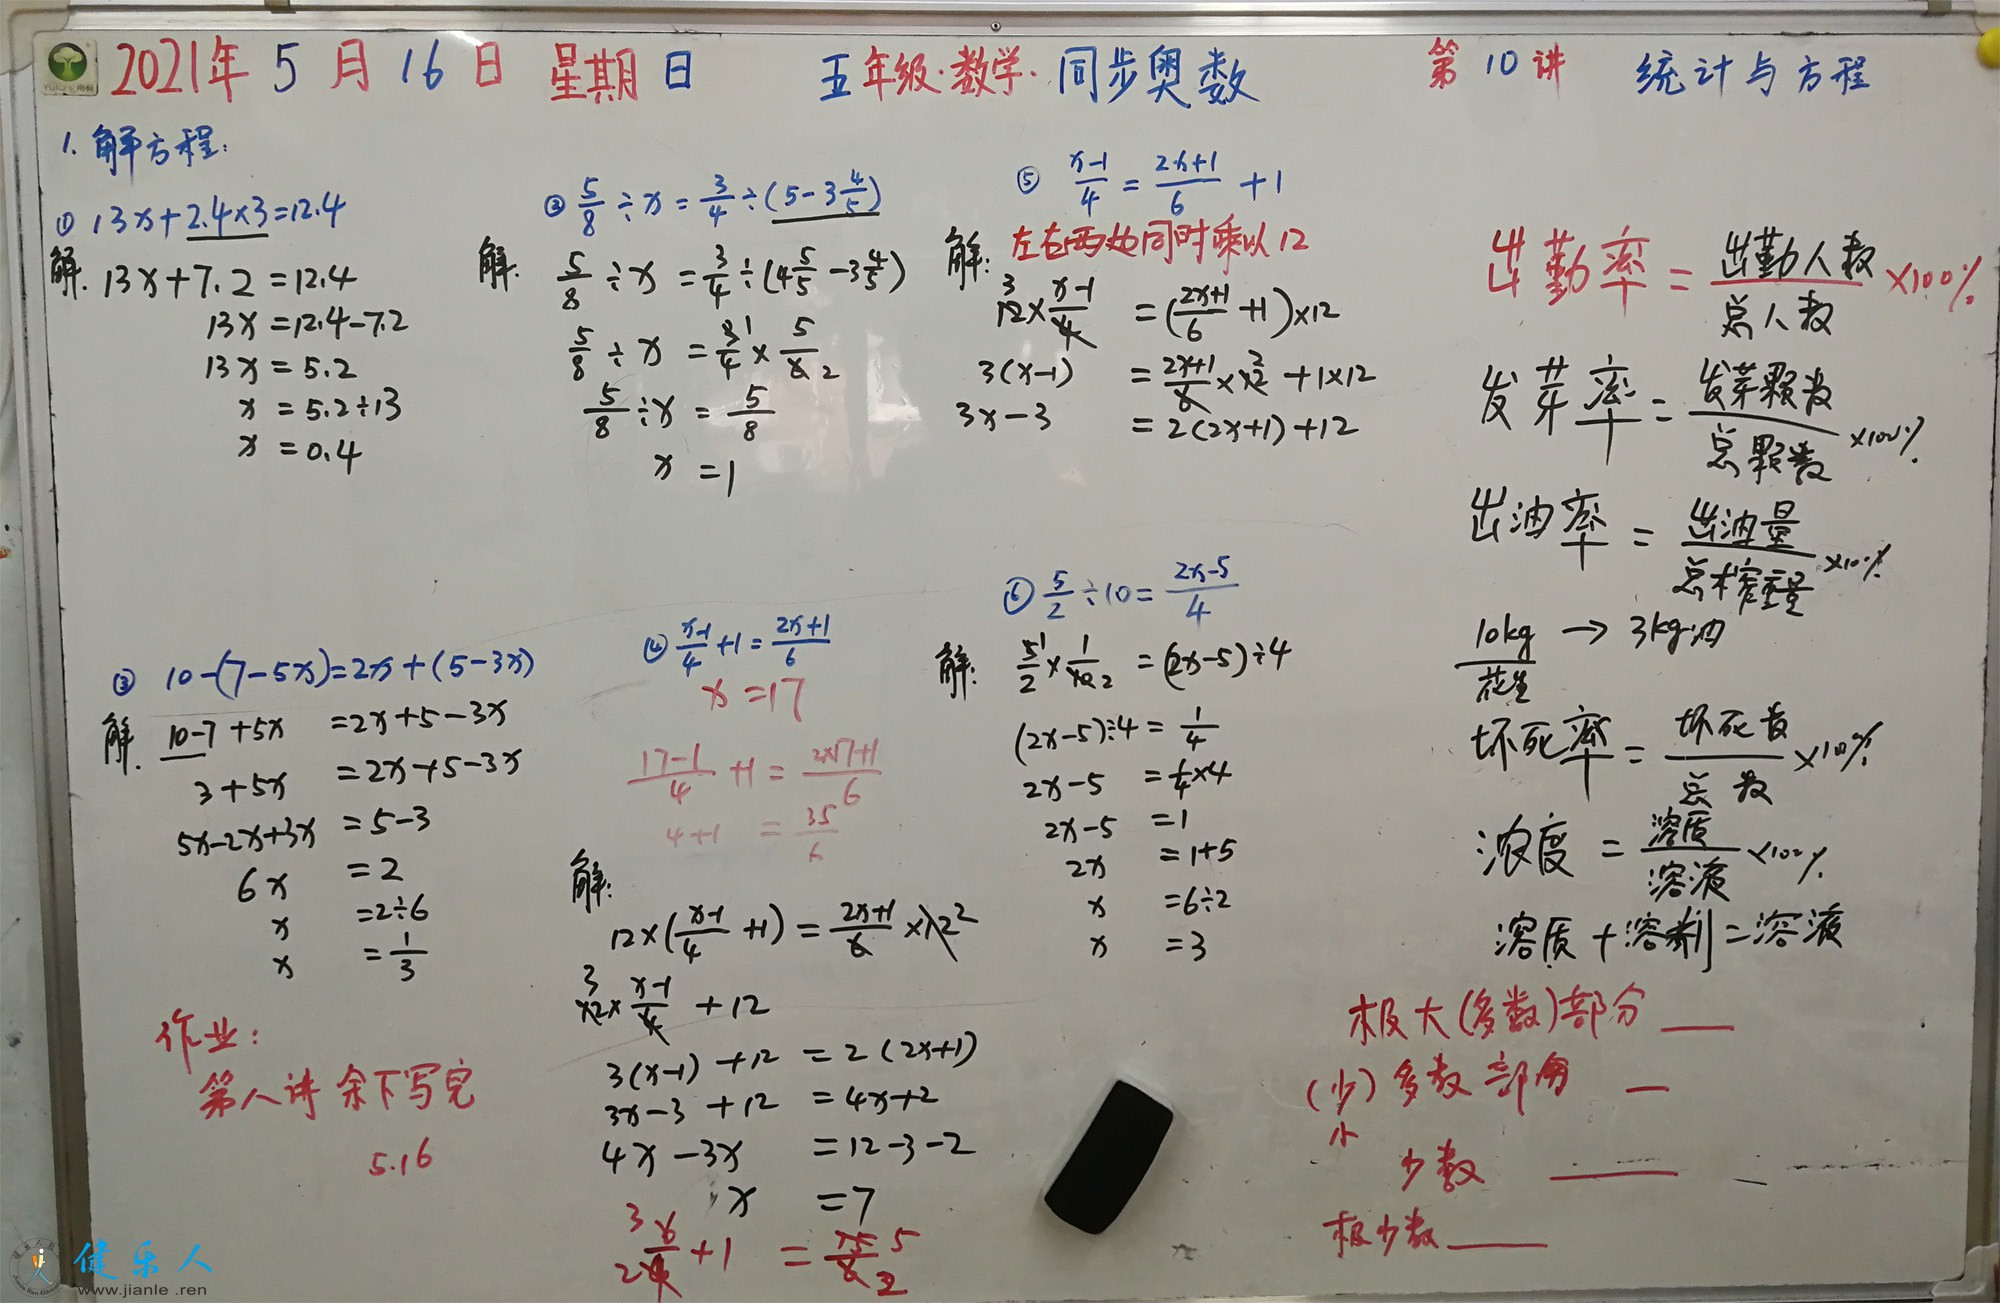 2021年 5 月 16 日 星期日 五年级·数学·同步奥数 第10讲 统计与方程
1. 解方程:
① 13x+2.4×3=12.4
解. 13x+7.2=12.4
13x=12.4-7.2
13x=5.2
x=5.2÷13
x=0.4
② 5/8÷x=3/4÷(5-3 4/5)
解. 5/8÷x=3/4÷(4 5/5-3 4/5)
5/8÷x=3/4 1×5/6 2
5/8÷x=5/8
x=1
③ 10-(7-5x)=2x+(5-3x)
解. 10-7+5x=2x+5-3x
3+5x=2x+5-3x
5x-2x+3x=5-3
6x=2
x=2÷6
x=1/3
作业:
第八讲 余下写完
5.16
④ x-1/4+1=2x+1/6
x=17
17-1/4+1=2×17+1/6
4+1=35/6
解:
12×(x-1/4+1)=2x+1/6×12 2
3 12×x-1/4+12
3(x-1)+12=2(2x+1)
3x-3+12=4x+2
4x-3x=12-3-2
x=7
3 6/2 4+1=15 5/6 2
⑤ x-1/4=2x+1/6+1
解: 左右两边同时乘以12
3 12×x-1/4=(2x+1/6+1)×12
3(x-1)=2x+1/6×12 2+1×12
3x-3=2(2x+1)+12
⑥ 5/2÷10=2x-5/4
解: 5 1/2×1/10 2=(2x-5)÷4
(2x-5)÷4=1/4
2x-5=1/4×4
2x-5=1
2x=1+5
x=6÷2
x=3
出勤率=出勤人数/总人数×100%
发芽率=发芽颗数/总颗数×100%
出油率=出油量/总榨重量×100%
10kg/花生→3kg油
坏死率=坏死数/总数×100%
浓度=溶质/溶液×100%
溶质+溶剂=溶液
极大(多数)部分
(少)多数部分
小
少数
极少数
健乐人
www.jianle.ren